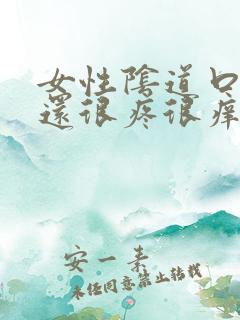 女性陰道口
還很疼很癢
安一素
未经同意禁止转载